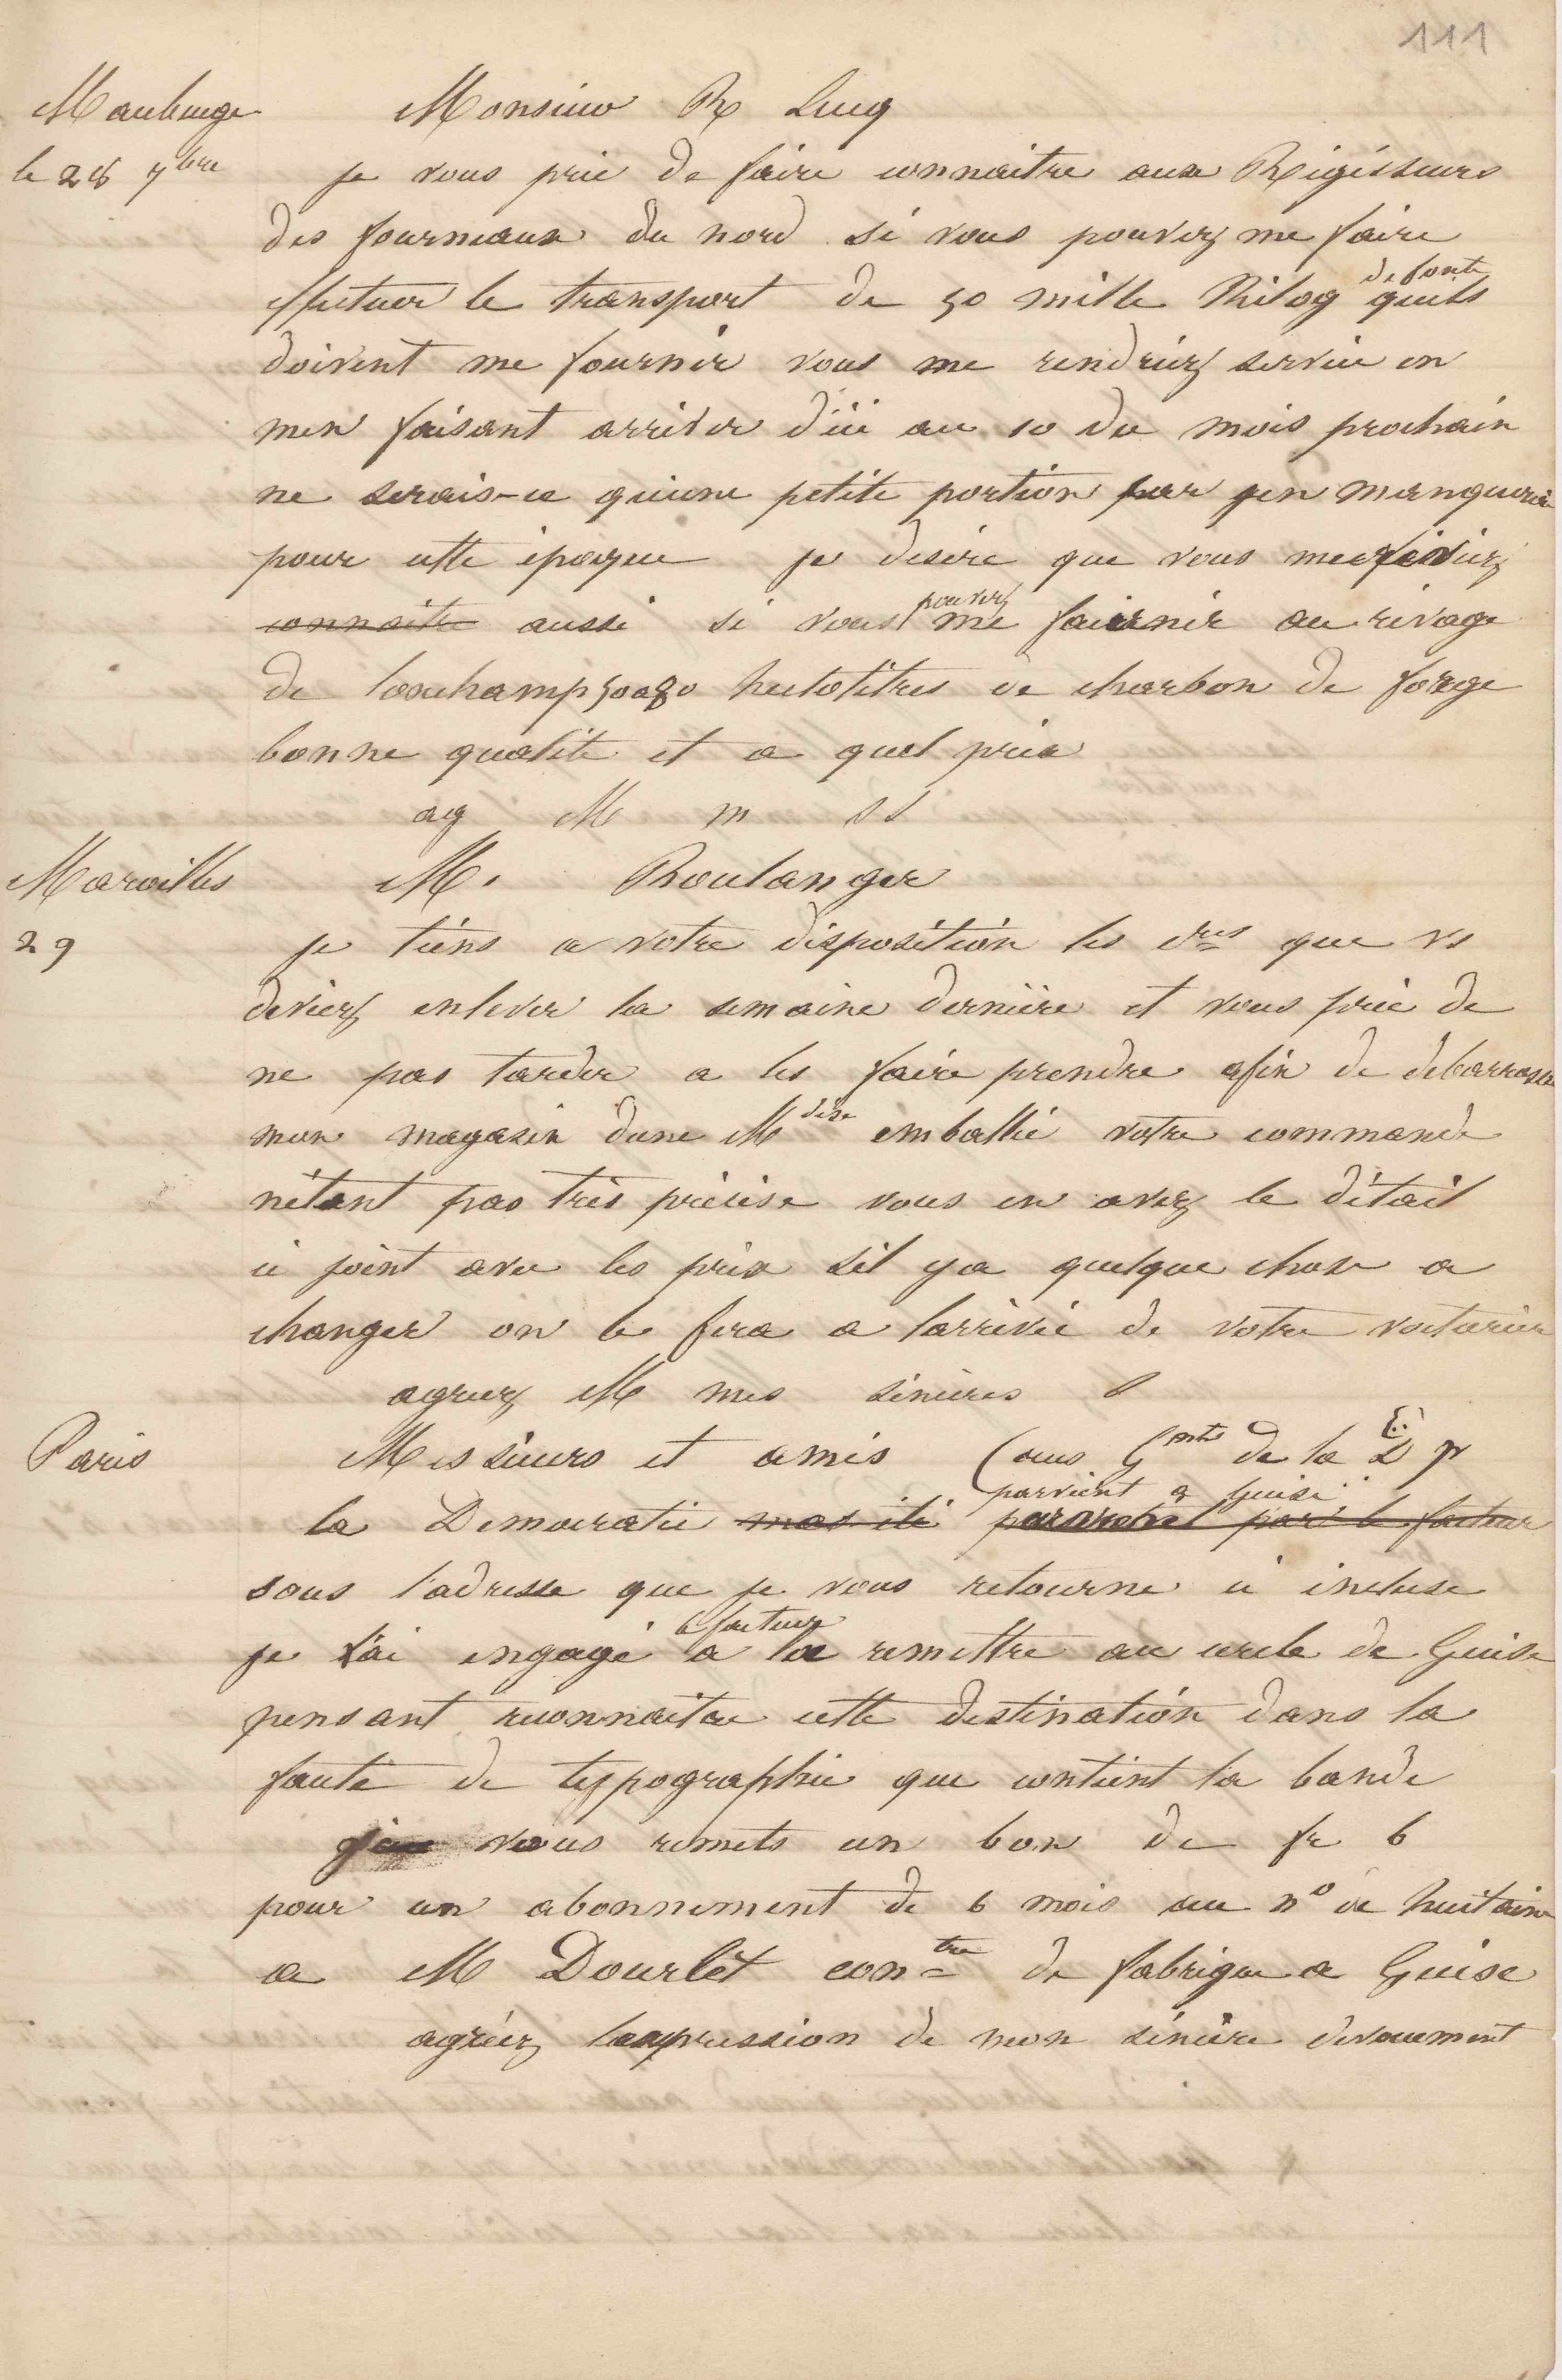 111
Maubeuge Monsieur R Lucq
le 28 7bre je vous prie de faire connaitre aux Régisseurs
des fourneaux du nord si vous pouvez me faire
effectuer le transport de 50 mille Kilog de fonte quils
doivent me fournir vous me rendriez service en
men faisant arriver d'ici au 10 du mois prochain
ne serais-ce qu'une petite portion car jen manquerai
pour cette époque je desire que vous me disiez
connaitre aussi si vous pouvez me fournir au rivage
de lonchamp 50 a 80 hectolitres de charbon de forge
bonne qualite et a quel prix
ag M m s s
Maroilles M. Boulanger
29 je tiens a votre disposition les que vs
deviez enlever la semaine dernière et vous prie de
ne pas tarder a les faire prendre afin de debarrasser
mon magasin dune Mdise emballée votre commande
nétant pas très précise vous en avez le détail
ci joint avec les prix sil ya quelque chose a
changer on le fera a larrivée de votre voiturier
agreez M mes sincères s
Paris Messieurs et amis de la D p
la Democratie mas été parvient a Guise par le facteur
sous l'adresse que je vous retourne ci incluse
je l'ai engagé le facteur a la remettre au cercle de Guise
pensant reconnaitre cette destination dans la
faute de typographie que contient la bande
je vous remets un bon de fr 6
pour un abonnement de 6 mois au n° de huitaine
a M Dourlet contre de fabrique a Guise
agréez lexpression de mon sincère devouement